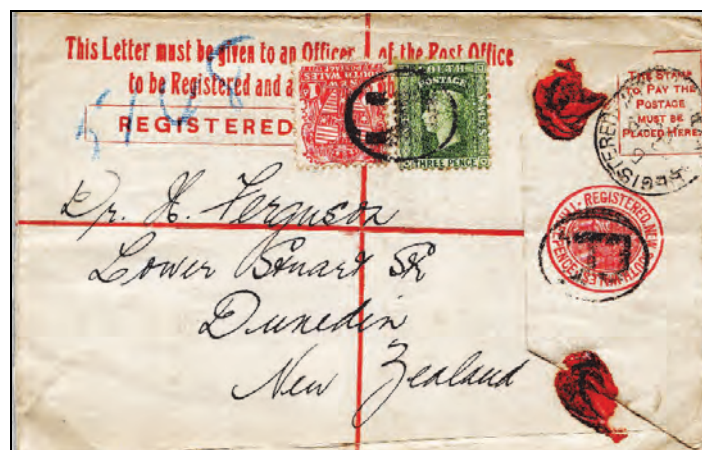 This Letter must be given to an Officer of the Post Office
to be Registered and a
REGISTERED
SOUTH WALES
POSTAGE
THREE PENCE
WALES
THE STAMP
TO PAY THE
POSTAGE
MUST BE
PLACED HERE
REGISTERED
REGISTERED, NEW
Dr. H. Ferguson
Lower Stuart St
Dunedin
New Zealand